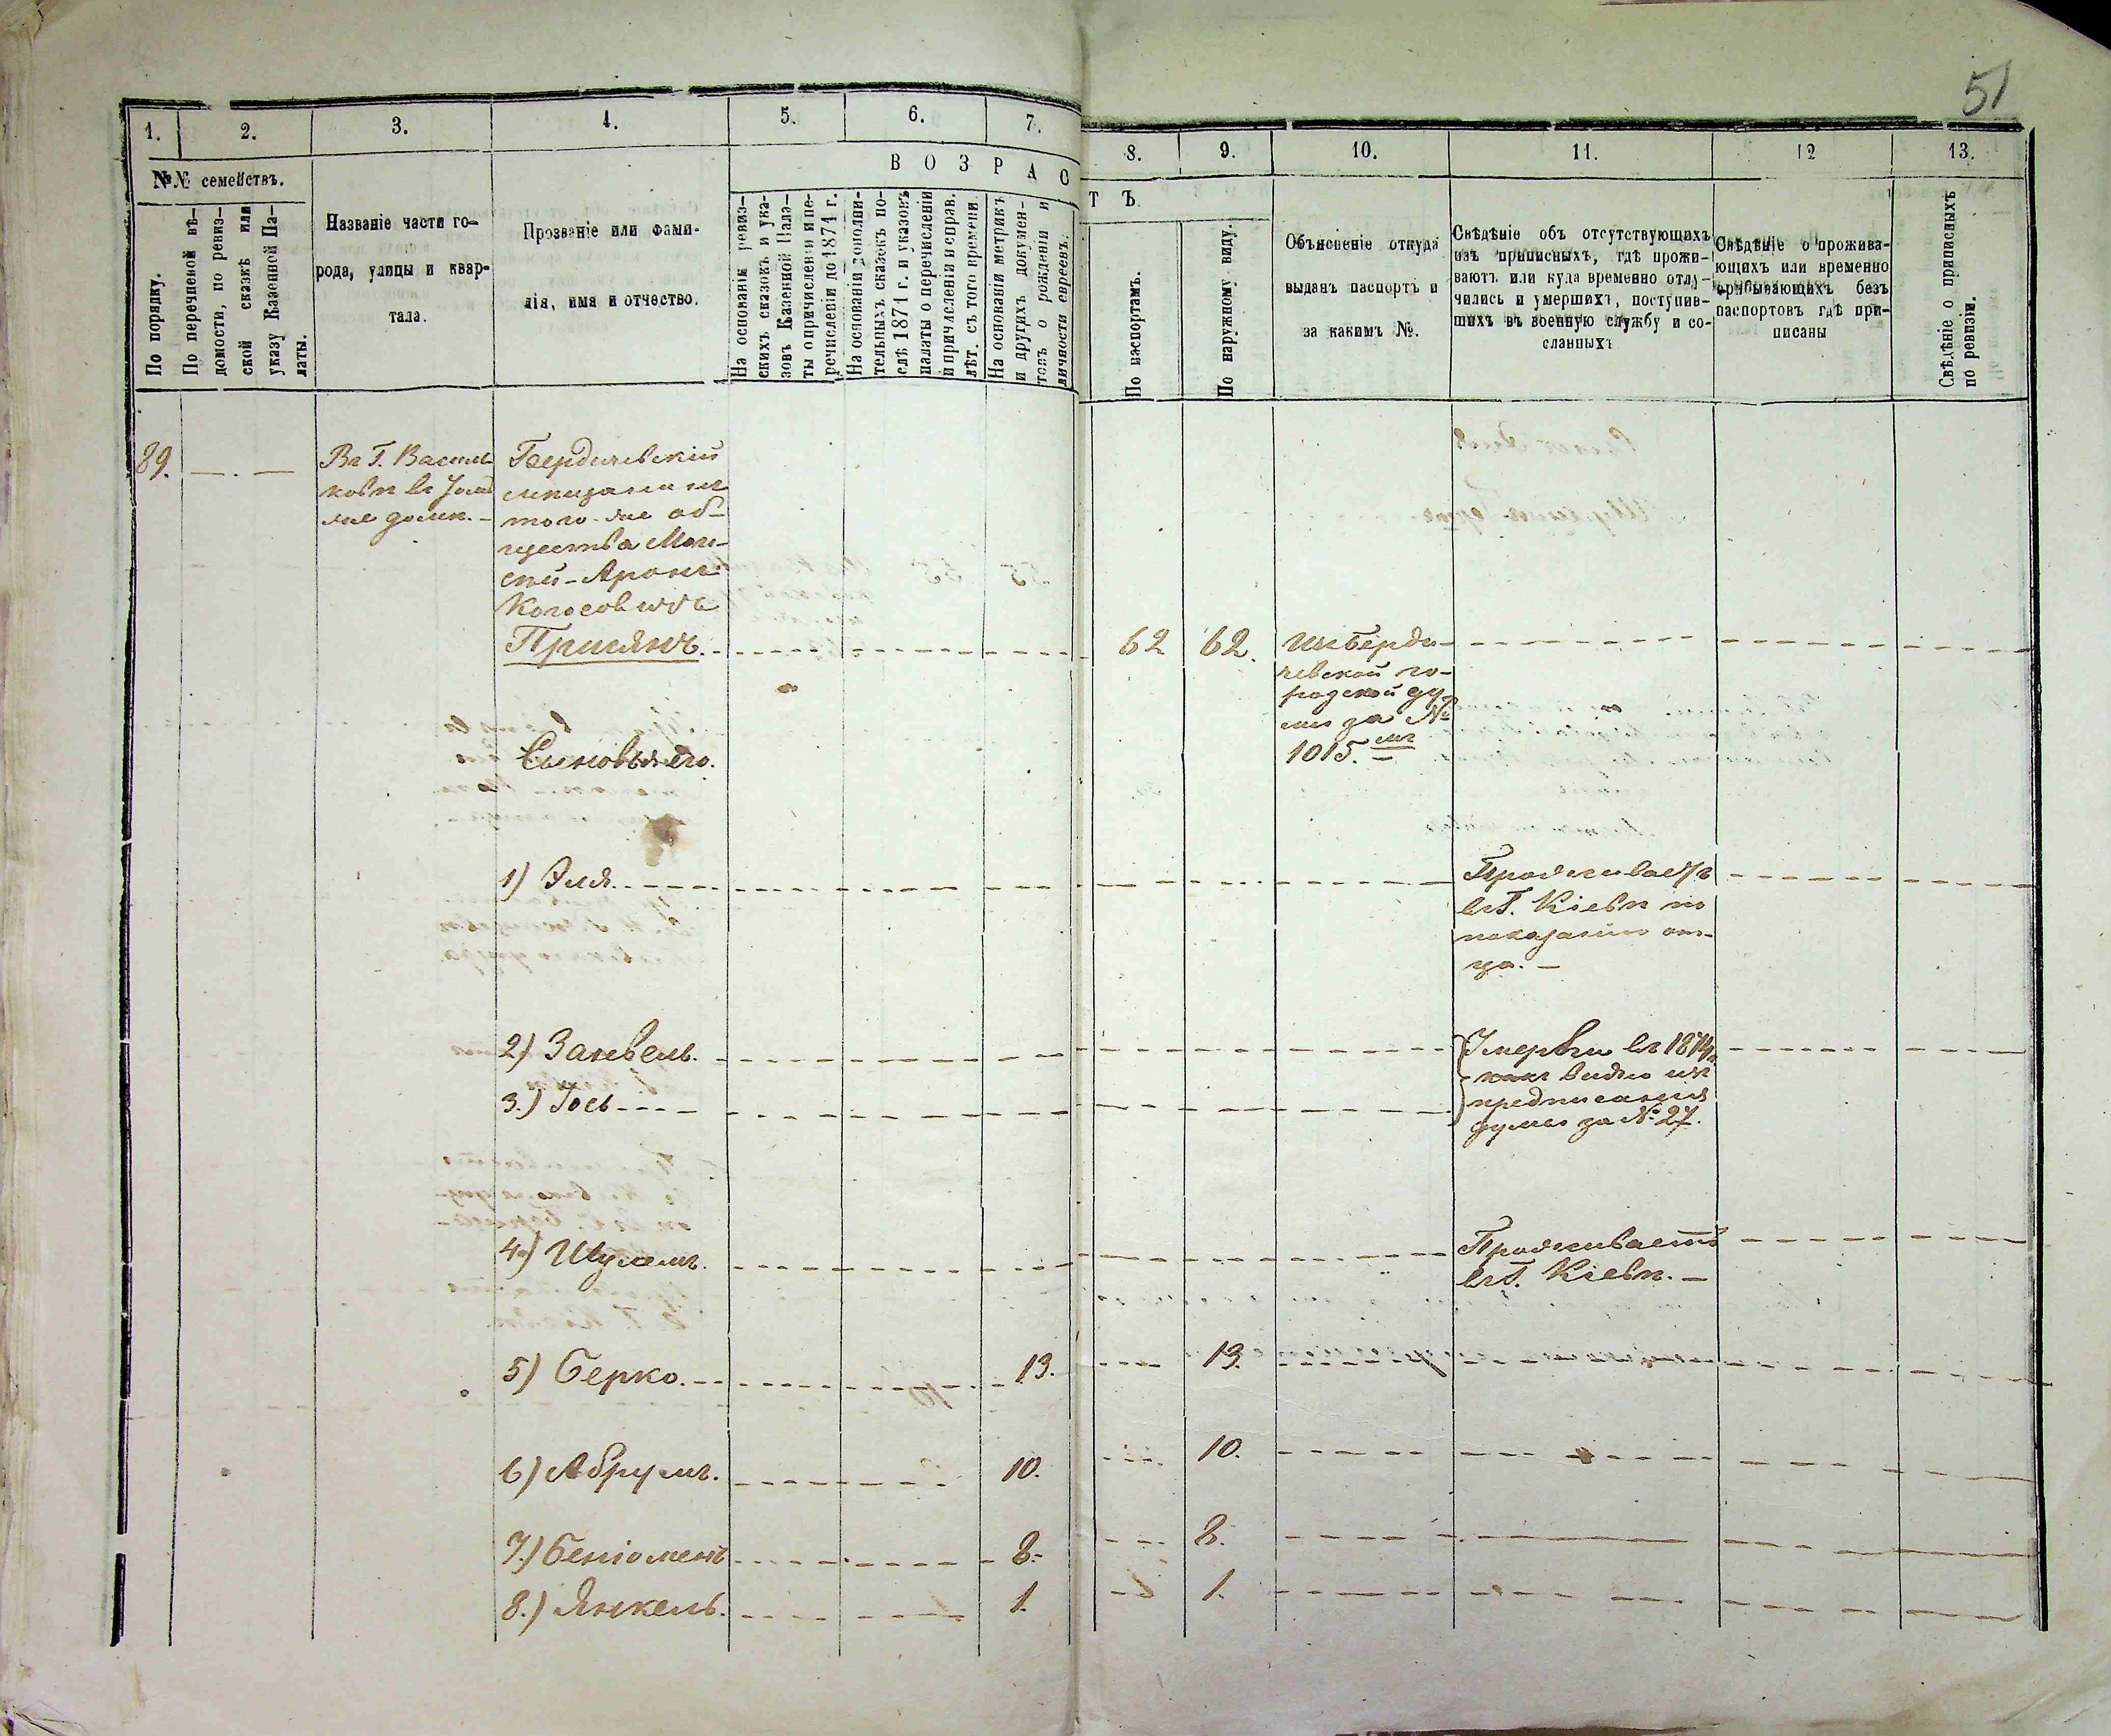 51
1. 2. 3. 4. 5. 6. 7. 8. 9. 10. 11. 12 13.
№№ семействъ.
В О З Р А С Т Ъ
По порядку.
По перечневой вѣ-
домости, по ревиз-
ской сказкѣ или
указу Казенной Па-
латы.
Названіе части го-
рода, улицы и квар-
тала.
Прозваніе или фами-
лія, имя и отчество.
На основаніи ревиз-
скихъ сказокъ и ука-
зовъ Казенной Пала-
ты о причисленіи и пе-
речисленіи до 1871 г.
На основаніи дополни-
тельныхъ сказокъ по-
слѣ 1871 г. и указовъ
палаты о перечисленіи
и причисленіи и справ.
лѣт. съ того времени.
На основаніи метрикъ
и другихъ докумен-
товъ о рожденіи и
личности евреевъ.
По паспортамъ.
По наружному виду.
Объясненіе откуда
выданъ паспортъ и
за какимъ №.
Свѣдѣніе объ отсутствующихъ
изъ приписныхъ, гдѣ прожи-
ваютъ или куда временно отлу-
чились и умершихъ, поступив-
шихъ въ военную службу и со-
сланныхъ
Свѣдѣніе о прожива-
ющихъ или временно
пребывающихъ безъ
паспортовъ гдѣ при-
писаны
Свѣдѣніе о приписныхъ
по ревизіи.
89. Въ Г. Василь-
ковѣ въ
же домѣ.
Бердичевскій
мѣщанинъ
того-же об-
щества Мош-
Аронъ
Присянъ. 62 62. Изъ Берди-
чевской го-
родской ду-
мы за №
1015.
Сыновья его.
1) Эля. Проживаетъ
въ Г. Кіевѣ по
показанію от-
ца.
2) Занвель. Умерли въ 1874
какъ видно изъ
предписанія
думы за № 27.
3.) Іось
4) Шулемъ. Проживаетъ
въ Г. Кіевѣ.
5) Берко. 13. 13.
6) Абрумъ. 10. 10.
7.) Беніоменъ 8. 8.
8.) Янкель. 1. 1.